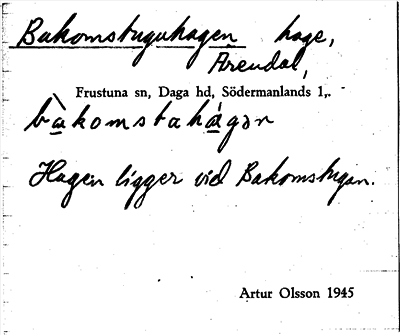 Bakomstuguhagen hage,
Årendal,
Frustuna sn, Daga hd, Södermanlands l,.
bàkomstahágən
Hagen ligger vid Bakomstugan.
Artur Olsson 1945